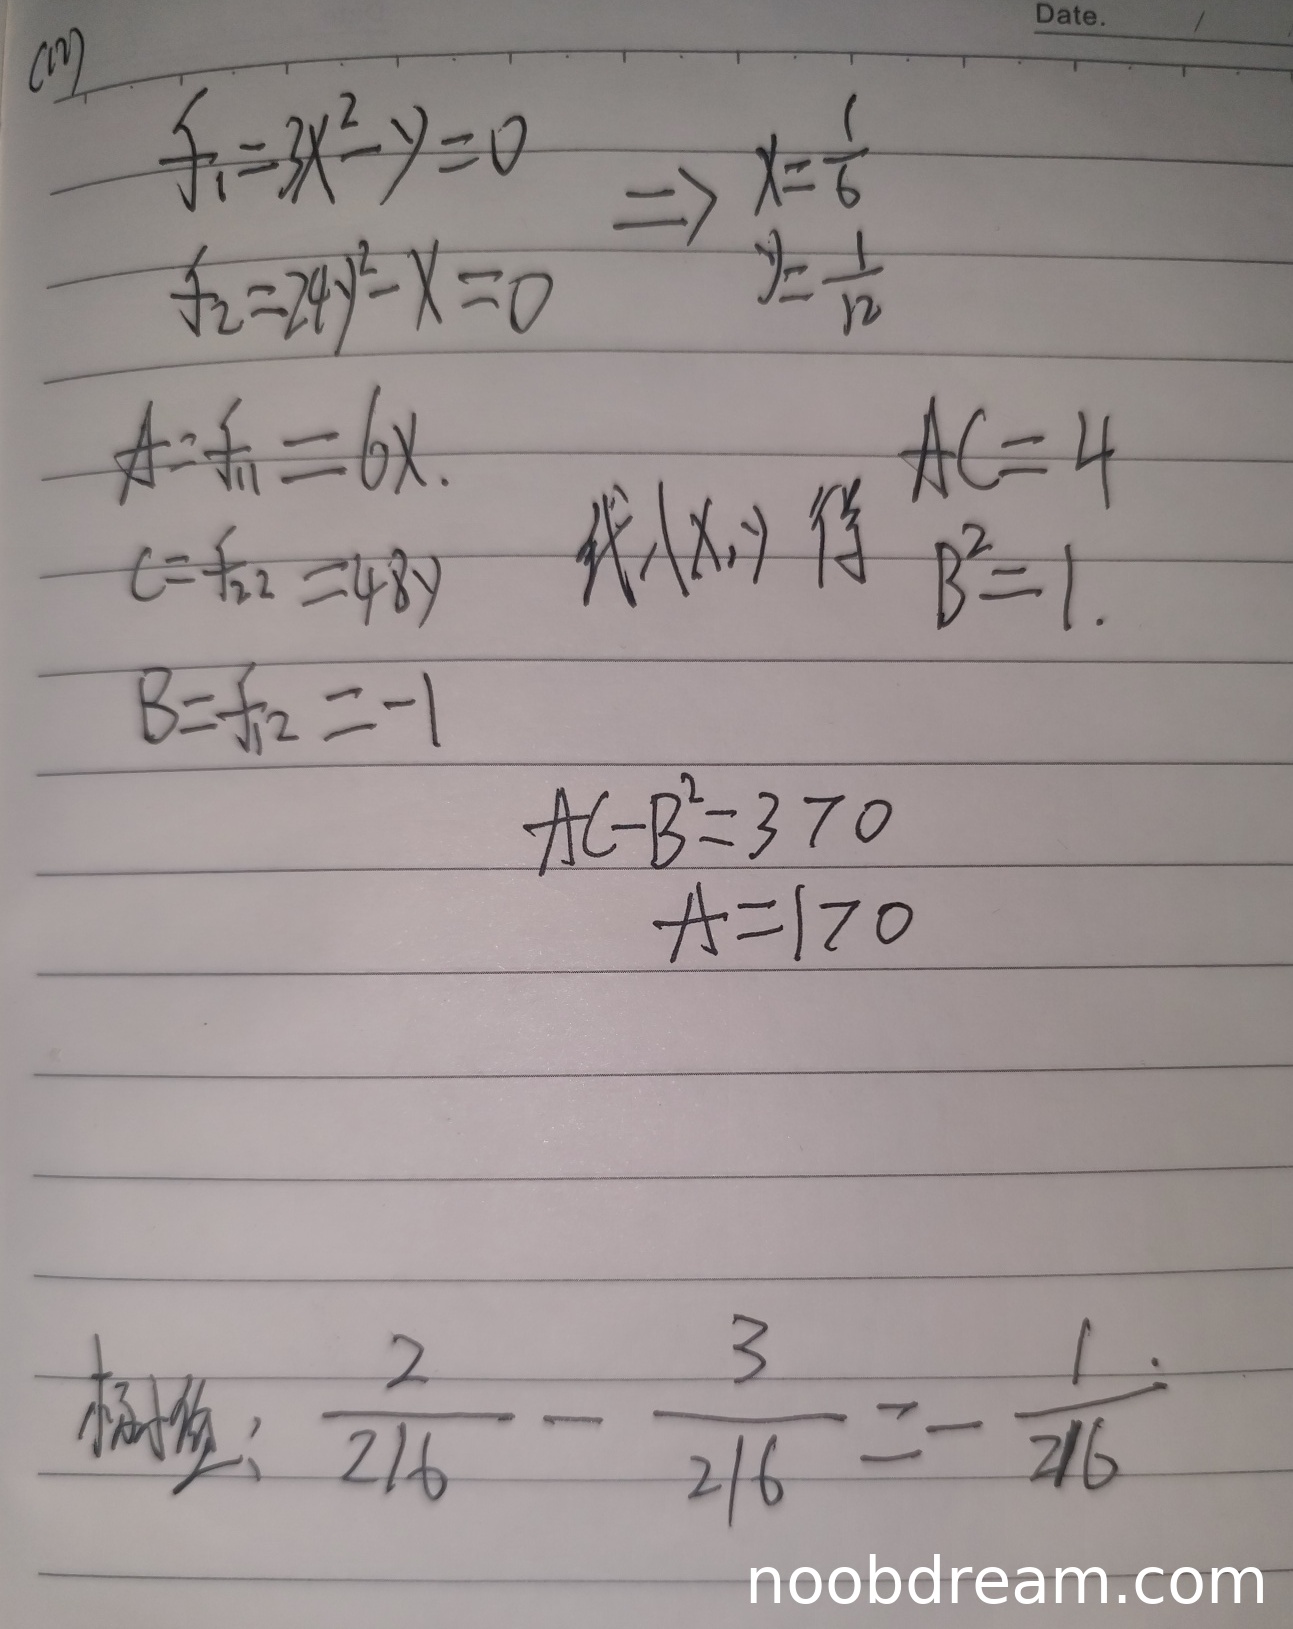 Date. /
(12)
f₁=3x²-y=0
f₂=24y²-x=0
=> x=1/6
y=1/12
A=f₁₁=6x.
C=f₂₂=48y
B=f₁₂=-1
代入(x,y)得
AC=4
B²=1.
AC-B²=3>0
A=1>0
极小值: 2/216 - 3/216 = -1/216.
noobdream.com